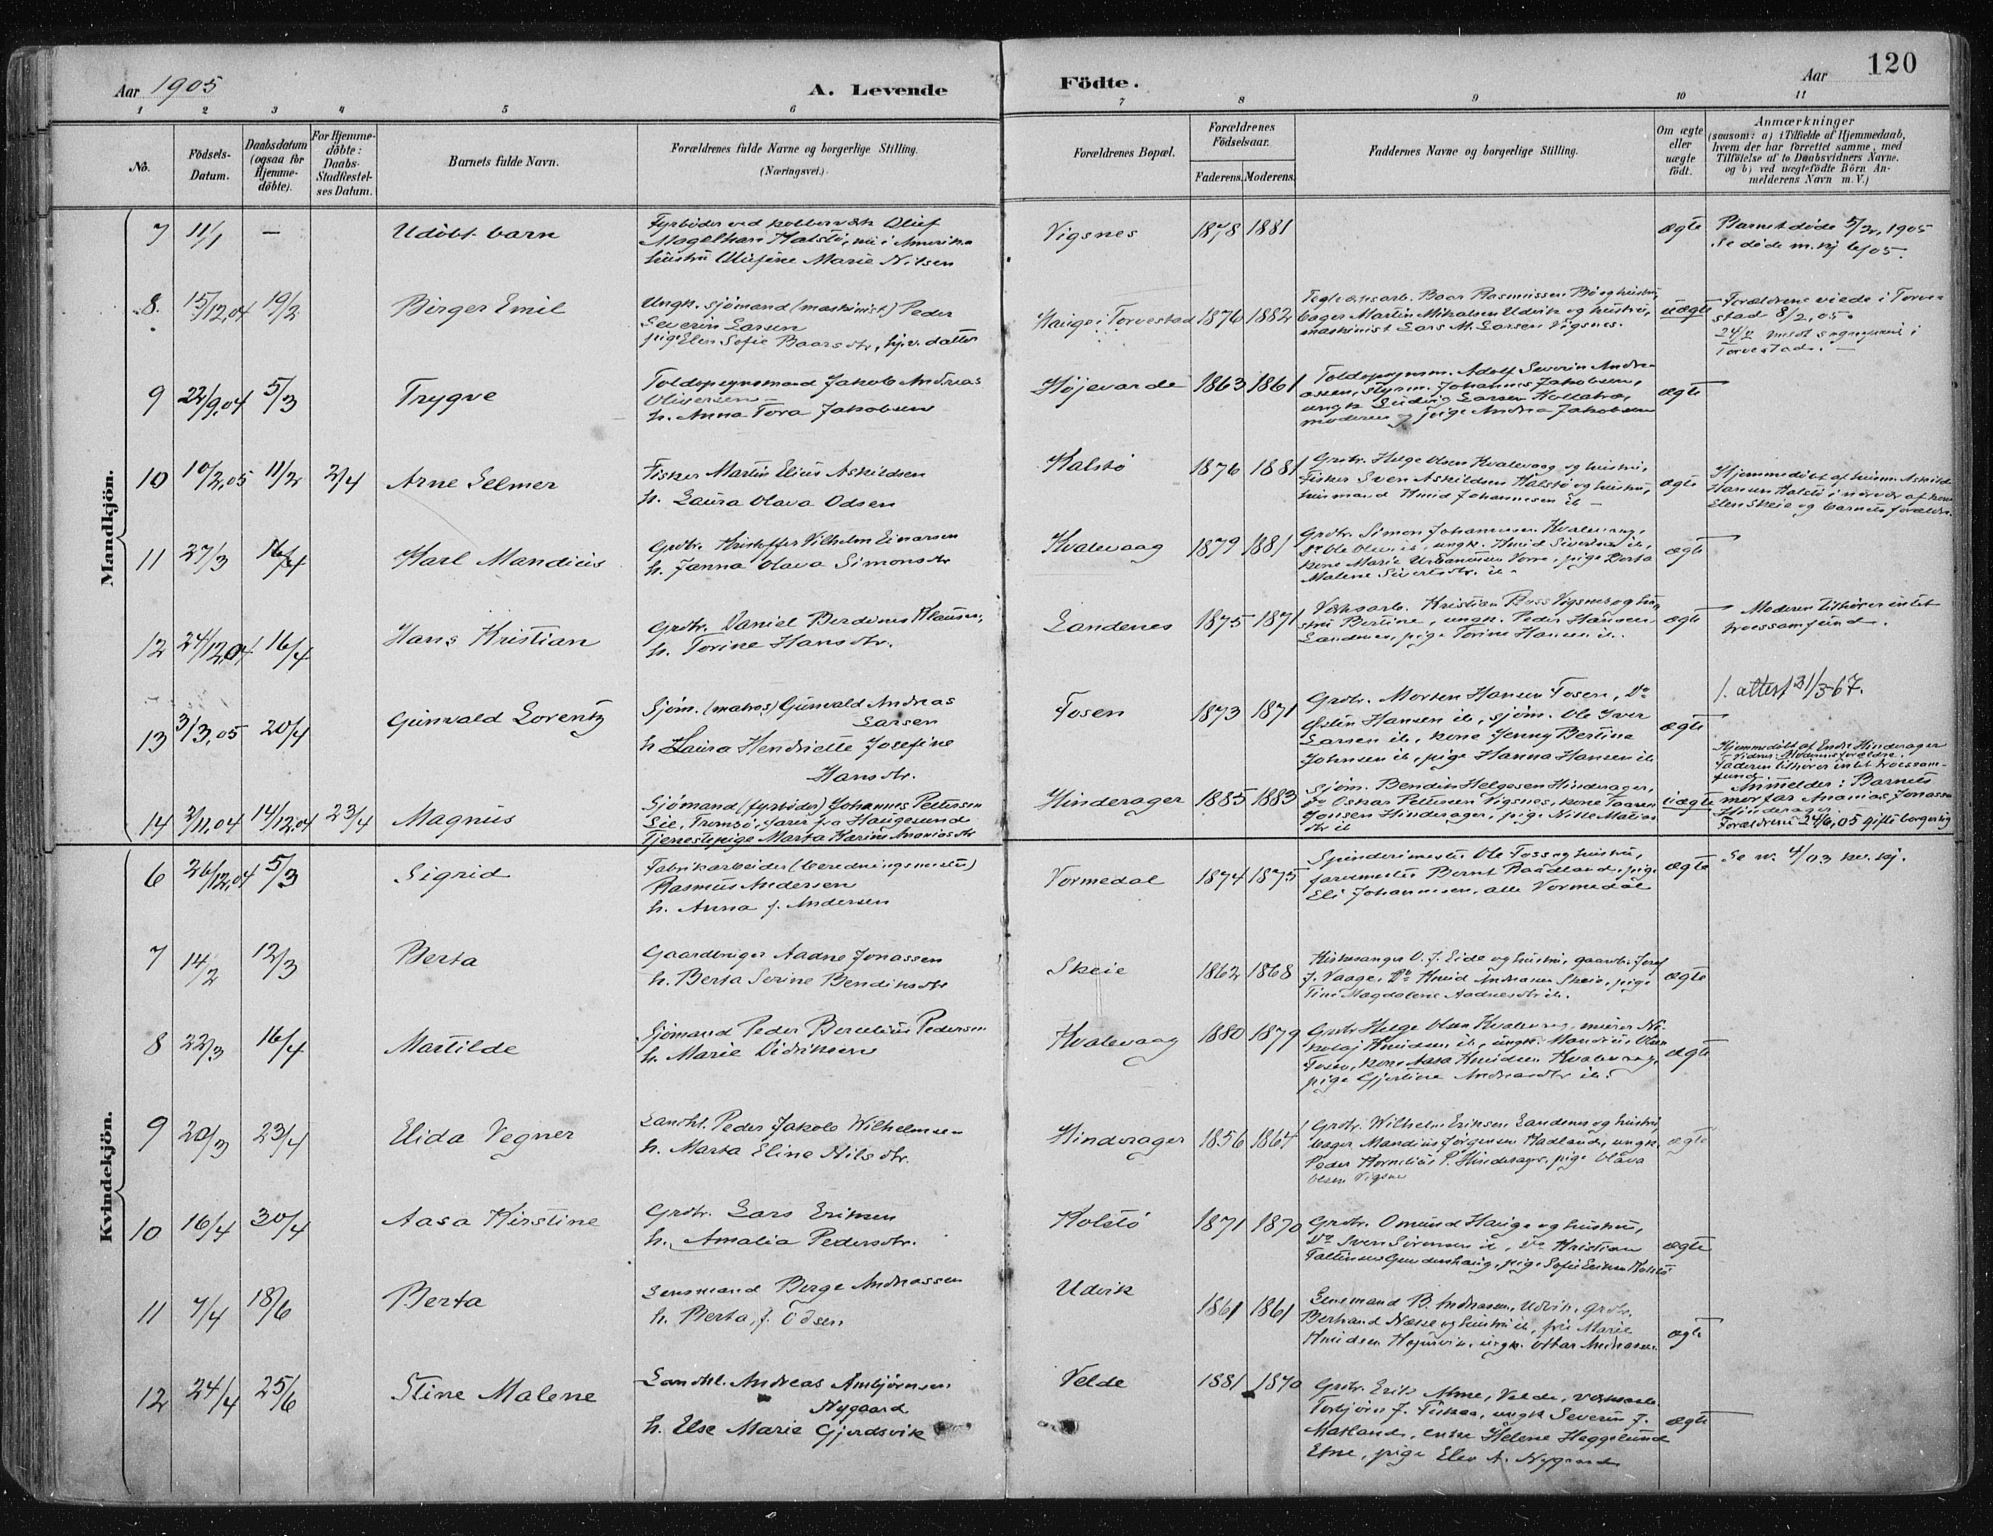 120
Aar 1905
A. Levende
Födte.
Aar
1 2 3 4 5 6 7 8 9 10 11
No.
Födsels-Datum.
Daabsdatum (ogsaa for Hjemme-döbte).
For Hjemme-döbte: Daabs-Stadfestel-ses Datum.
Barnets fulde Navn.
Forældrenes fulde Navne og borgerlige Stilling.
(Næringsvei.)
Forældrenes Bopæl.
Forældrenes Födselsaar.
Faderens. Moderens.
Faddernes Navne og borgerlige Stilling.
Om ægte eller uægte födt.
Anmærkninger
(saasom: a) i Tilfælde af Hjemmedaab,
hvem der har forrettet samme, med
Tilföielse af to Daabsvidners Navne.
og b) ved uægtefödte Börn An-
melderens Navn m. V.)
Mandkjön.
7 11/1 — Udöbt barn
Fyrböder ved kobberværk Oluf
Magelhan Kalstö, nu i Amerika
hustru Olufine Marie Nilsen
Vigsnes 1878 1881 ægte
Barnet döde 5/2, 1905
Se döde m. kj 6/05.
8. 15/12,04 19/2 Birger Emil
Ungk. sjömand (maskinist) Peder
Severin Larsen
pige Elen Sofie Baarsdtr, hjv. datter
Hauge i Torvestad 1876 1882
Teglværksarb. Baar Rasmussen Bö og hustru,
bager Martin Mikalsen Udvik og hustru,
maskinist Lars M. Larsen Vigsnes.
uægte
Forældrene viede i Torve-
stad 8/2, 05.
Torvestad. —
9 22/9,04 5/3 Trygve
Toldopsynsmand Jakob Andreas
Oliversen
h. Anna Tora Jakobsen
Höjevarde 1863 1861
Toldopsynsm. Adolf Severin Andre-
asen, styrm. Johannes Jakobsen,
ungk Ludvig Larsen
moderen, pige Andrea Jakobsen
ægte
10 10/2,05 11/2 2/4 Arne Selmer
Fisker Martin Elius Askildsen
h. Laura Olava Odsen
Kalstö 1876 1881
Grdbr. Helge Olsen Kvalevaag og hustru,
Fisker Sven Askildsen Kalstö og hustru,
husmand Knud Johannesen ib —
ægte
Hjemmedöbt af husm. Askild
Hansen Kalstö i nærvær af kone
Elen Skeie og barnets forældre.
11 27/3 16/4 Karl Mandius
Grdbr. Kristoffer Vilhelm Einarsen
h. Janna Olava Simonsdtr
Kvalevaag 1879 1881
Grdbr. Simon Johannesen Kvalevaag,
Do Ole Olsen ib, ungk. Knud Sivertsen ib,
kone Marie Urbanussen Vorre, pige Berta
Malene Sivertsdtr. ib.
ægte
12 24/12,04 16/4 Hans Kristian
Grdbr. Daniel Berdines Klausen,
h. Torine Hansdtr.
Landenes 1875 1871
Værksarb. Kristian Bess Vigsnes og hu-
stru Bertine, ungk. Peder Hansen
Landenes, pige Torine Hansen ib.
ægte
Moderen tilhörer intet
troessamfund.
13 3/3,05 20/4 Gunvald Lorentz
Sjöm. (matros) Gunvald Andreas
Larsen
h Laura Henriette Josefine
Hansdtr.
Fosen 1873 1871
Grdbr. Morten Hansen Fosen, Do
Østen Hansen ib, sjöm. Ole Iver
Larsen ib, kone Jenny Bertine
Johnsen ib, pige Hanna Hansen ib
ægte
1. attest 31/3-67.
14 2/11,04 14/12,04 23/4 Magnus
Sjömand (fyrböder) Johannes Pettersen
Lie, Tromsö, farer fra Haugesund
Tjenestepige Marta Karine Ananiasdtr
Hinderager 1885 1883
Sjöm. Bendik Helgesen Hinderager,
Do Oskar Pettersen Vigsnes, kone Taaran
Jonsen Hinderager, pige Nille Matias
dtr ib
uægte
Hjemmedöbt af Endre Hinderager
Vidner Moderens forældre.
Faderen tilhörer intet troessam-
fund. Anmelder: Barnets
morfar Ananias Jonassen
Hinderager.
Forældrene 24/6, 05 gifte borgerlig
Kvindekjön.
6 26/12,04 5/3 Sigrid
Fabrikarbeider (beredningsmester)
Rasmus Andersen
h. Anna f. Andersen
Vormedal 1874 1875
Spinderimester Ole Foss og hustru,
farvemester Bernt Raadland, pige
Eli Johannesen, alle Vormedal
ægte
Se nr. 4/03 kv. kj.
7 14/2 12/3 Berta
Gaardbruger Aadne Jonassen
h. Berta Serine Bendiksdtr
Skeie 1862 1868
Kirkesanger O. J. Eide og hustru, gaardbr. Josef
J. Vaage, Do Knud Andreasen Skeie, pige
Tine Magdalene Aadnesdtr ib.
ægte
8 22/3 16/4 Martilde
Sjömand Peder Bercelius Pedersen
h. Marie Didriksen
Kvalevaag 1880 1879
Grdbr Helge Olsen Kvalevaag, murer Ni-
kolaj Knudsen ib, ungk. Mandius Olsen
Fosen, kone Aasa Knudsen Kvalevaag,
pige Gjertine Andreasdtr ib.
ægte
9 20/3 23/4 Elida Vegner
Landhl. Peder Jakob Wilhelmsen
h. Marta Eline Nilsdtr.
Hinderager 1856 1864
Grdbr. Wilhelm Eriksen Landenes og hustru,
bager Mandius Jörgensen Hadland, ungk.
Peder Kornelius P. Hinderager, pige Olava
Olsen Vigsnes
ægte
10 16/4 30/4 Aasa Kirstine
Grdbr. Lars Eriksen
h. Amalia Pedersdtr.
Kolstö 1871 1870
Grdbr. Omund Hauge og hustru,
Do Sven Sörensen ib, Do Kristian
pige Sofie Eriksen Kolstö
ægte
11 7/4 18/6 Berta
Lensmand Berge Andreassen
h. Berta, f. Odsen
Udvik 1861 1861
Lensmand B. Andreassen, Udvik, grdbr.
Berhard Næsse og hustru ib, fru Marie
Knudsen ungk. Ottar Andreassen.
ægte
12 24/4 25/6 Stine Malene
Landhl. Andreas Ambjörnsen
Nygaard
h. Else Marie Gjerdsvik
Velde 1881 1870
Grdbr. Erik Alme, Velde,
Torbjörn J. Fiskaa, ungk Severin J.
Matland, enke Helene Heggelund
Etne, pige Elen A. Nygaard
ægte